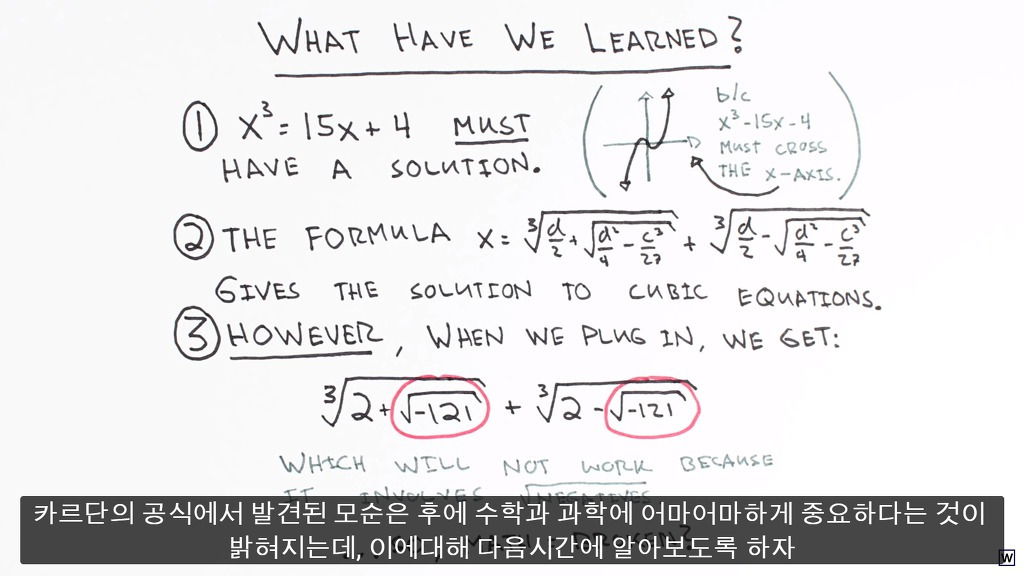 WHAT HAVE WE LEARNED?
① x³ = 15x + 4 MUST
HAVE A SOLUTION.
b/c
x³-15x-4
MUST CROSS
THE X-AXIS.
② THE FORMULA x = ∛(d/2 + √(d²/4 - c³/27)) + ∛(d/2 - √(d²/4 - c³/27))
GIVES THE SOLUTION TO CUBIC EQUATIONS.
③ HOWEVER, WHEN WE PLUG IN, WE GET:
∛(2+√-121) + ∛(2-√-121)
WHICH WILL NOT WORK BECAUSE
IT INVOLVES √NEGATIVES
카르단의 공식에서 발견된 모순은 후에 수학과 과학에 어마어마하게 중요하다는 것이
밝혀지는데, 이에대해 다음시간에 알아보도록 하자
W